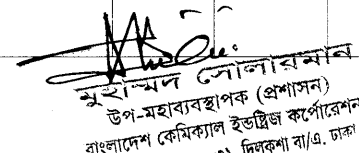 মুহাম্মদ সোলায়মান
উপ-মহাব্যবস্থাপক (প্রশাসন)
বাংলাদেশ কেমিক্যাল ইন্ডাষ্ট্রিজ কর্পোরেশন
দিলকুশা বা/এ. ঢাকা